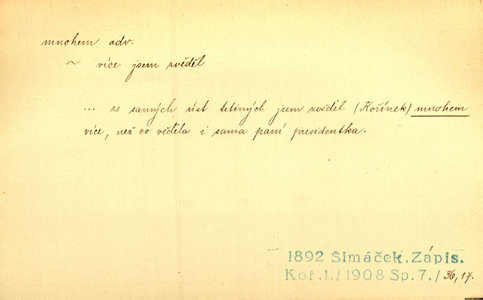 mnohem adv.
~ více jsem zvěděl
... ze samých úst tetiných jsem zvěděl (Kořínek) mnohem
více, než co věděla i sama paní presidentka.
1892 Šimáček, Zápis.
Koř. 1./1908 Sp. 7./36, 17.